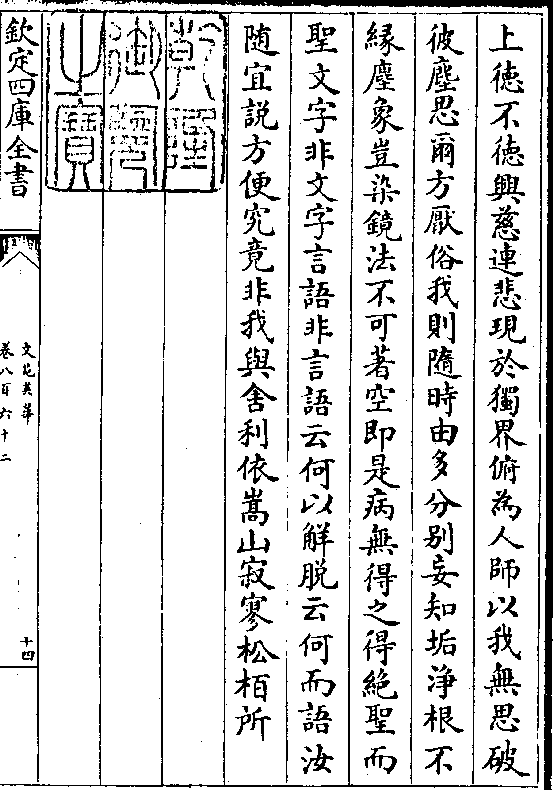 上徳不徳興慈連悲現於獨界俯為人師以我無思破
彼塵思爾方厭俗我則隨時由多分别妄知垢浄根不
緣塵象豈染鏡法不可著空即是病無得之得絶聖而
聖文字非文字言語非言語云何以解脱云何而語汝
随宜説方便究竟非我與舍利依嵩山寂寥松栢所
乾隆
御覽
之寶
欽定四庫全書
文苑英華
卷八百六十二
十四